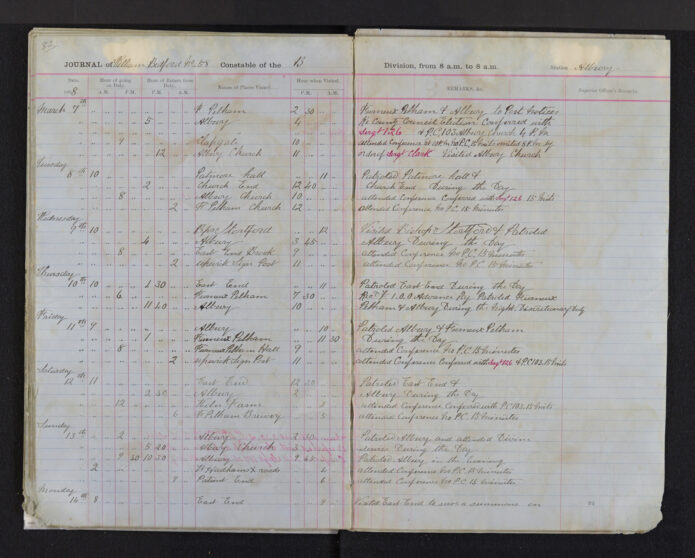 82
JOURNAL of Pelham Bedford No 58 Constable of the B Division, from 8 a.m. to 8 a.m. Station Albury
Date. Hour of going on Duty. Hour of Return from Duty. Names of Places Visited. Hour when Visited. REMARKS, &c. Superior Officer's Remarks.
P.M. A.M. P.M. A.M.
March 7th F Pelham 2 30 Furneux Pelham & Albury to Post Notices
5 Albury 4 Re County Council Election Conferred with
Sergt 126 & P.C. 103 Albury Church
9 Clapgate 10 attended Conference
12 Albury Church 11 order of Sergt Clark Visited Albury Church
Tuesday
8th 10 Patmore hall 11 Patroled Patmore hall &
2 Church End 12 40 Church End During the Day
8 Albury Church 10 attended Conference Conferred with Sergt 126 15 Minits
2 F Pelham Church 12 attended Conference No P.C. 15 Minuites
Wednesday
9th 10 Bps Stortford 12 Visited Bishops Stortford & Patroled
4 Albury 3 45 Albury During the Day
8 East End Brook 9 attended Conference No P.C. 15 Minuites
2 upwick Sign Post 11 attended Conference No P.C. 15 Minuites
Thursday
10th 10 1 30 East End 11 Patroled East End During the Day
6 Furneux Pelham 7 30 Patroled Furneux
11 40 Albury 10 Pelham & Albury During the Night Discretionary Duty
Friday
11th 9 Albury 10 Patroled Albury & Furneux Pelham
1 Furneux Pelham 11 30 During the Day
8 Furneux Pelham Hall 9 attended Conference No P.C. 15 Minuites
2 upwick Sign Post 11 attended Conference Conferred with Sergt 126 & P.C. 103 15 Minits
Saturday
12th 11 East End 12 30 Patroled East End &
2 30 Albury 2 Albury During the Day
12 Farm 2 attended Conference Conferred with P.C 103 15 Minits
6 F Pelham Brewery 5 attended Conference No P.C. 15 Minuites
Sunday
13th 2 Albury 2 30 Patroled Albury and attended Divine
5 20 Albury Church 3 service During the Day
9 30 10 30 Albury 9 45 Patroled Albury in the Evening
2 Hadham roads 4 attended Conference No P.C. 15 Minuites
8 Patient End 6 attended Conference No P.C. 15 Minuites
Monday
14th 8 East End 9 Visited East End to serve a summons on